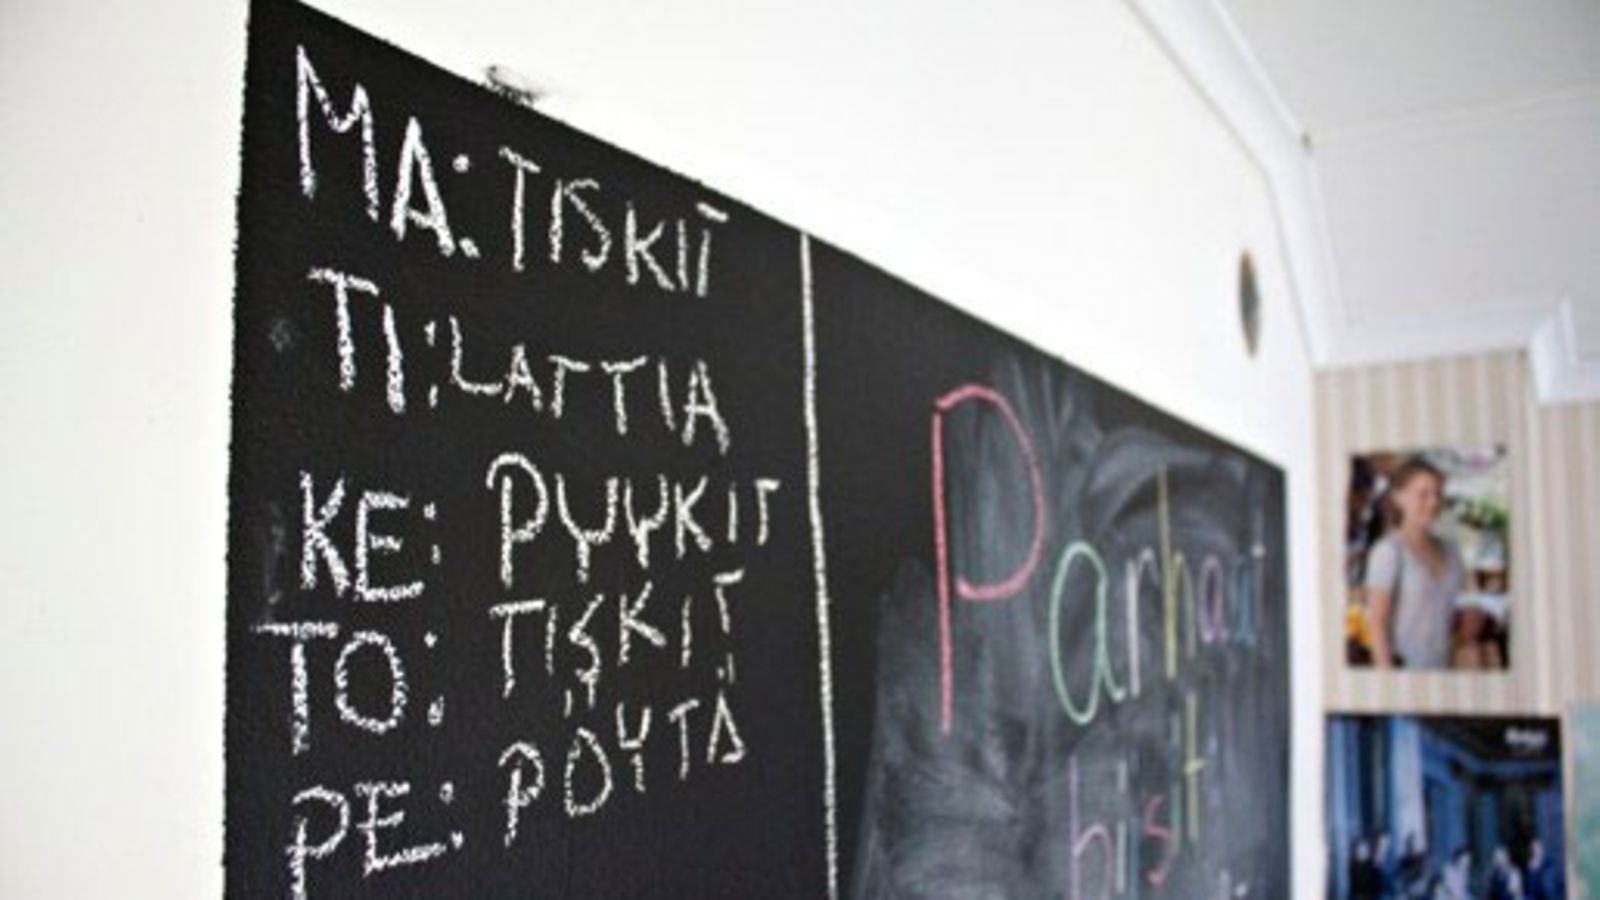 MA: TISKIT
TI: LATTIA
KE: PYYKIT
TO: TISKIT
PE: PÖYTÄ
Parhaat
biisit